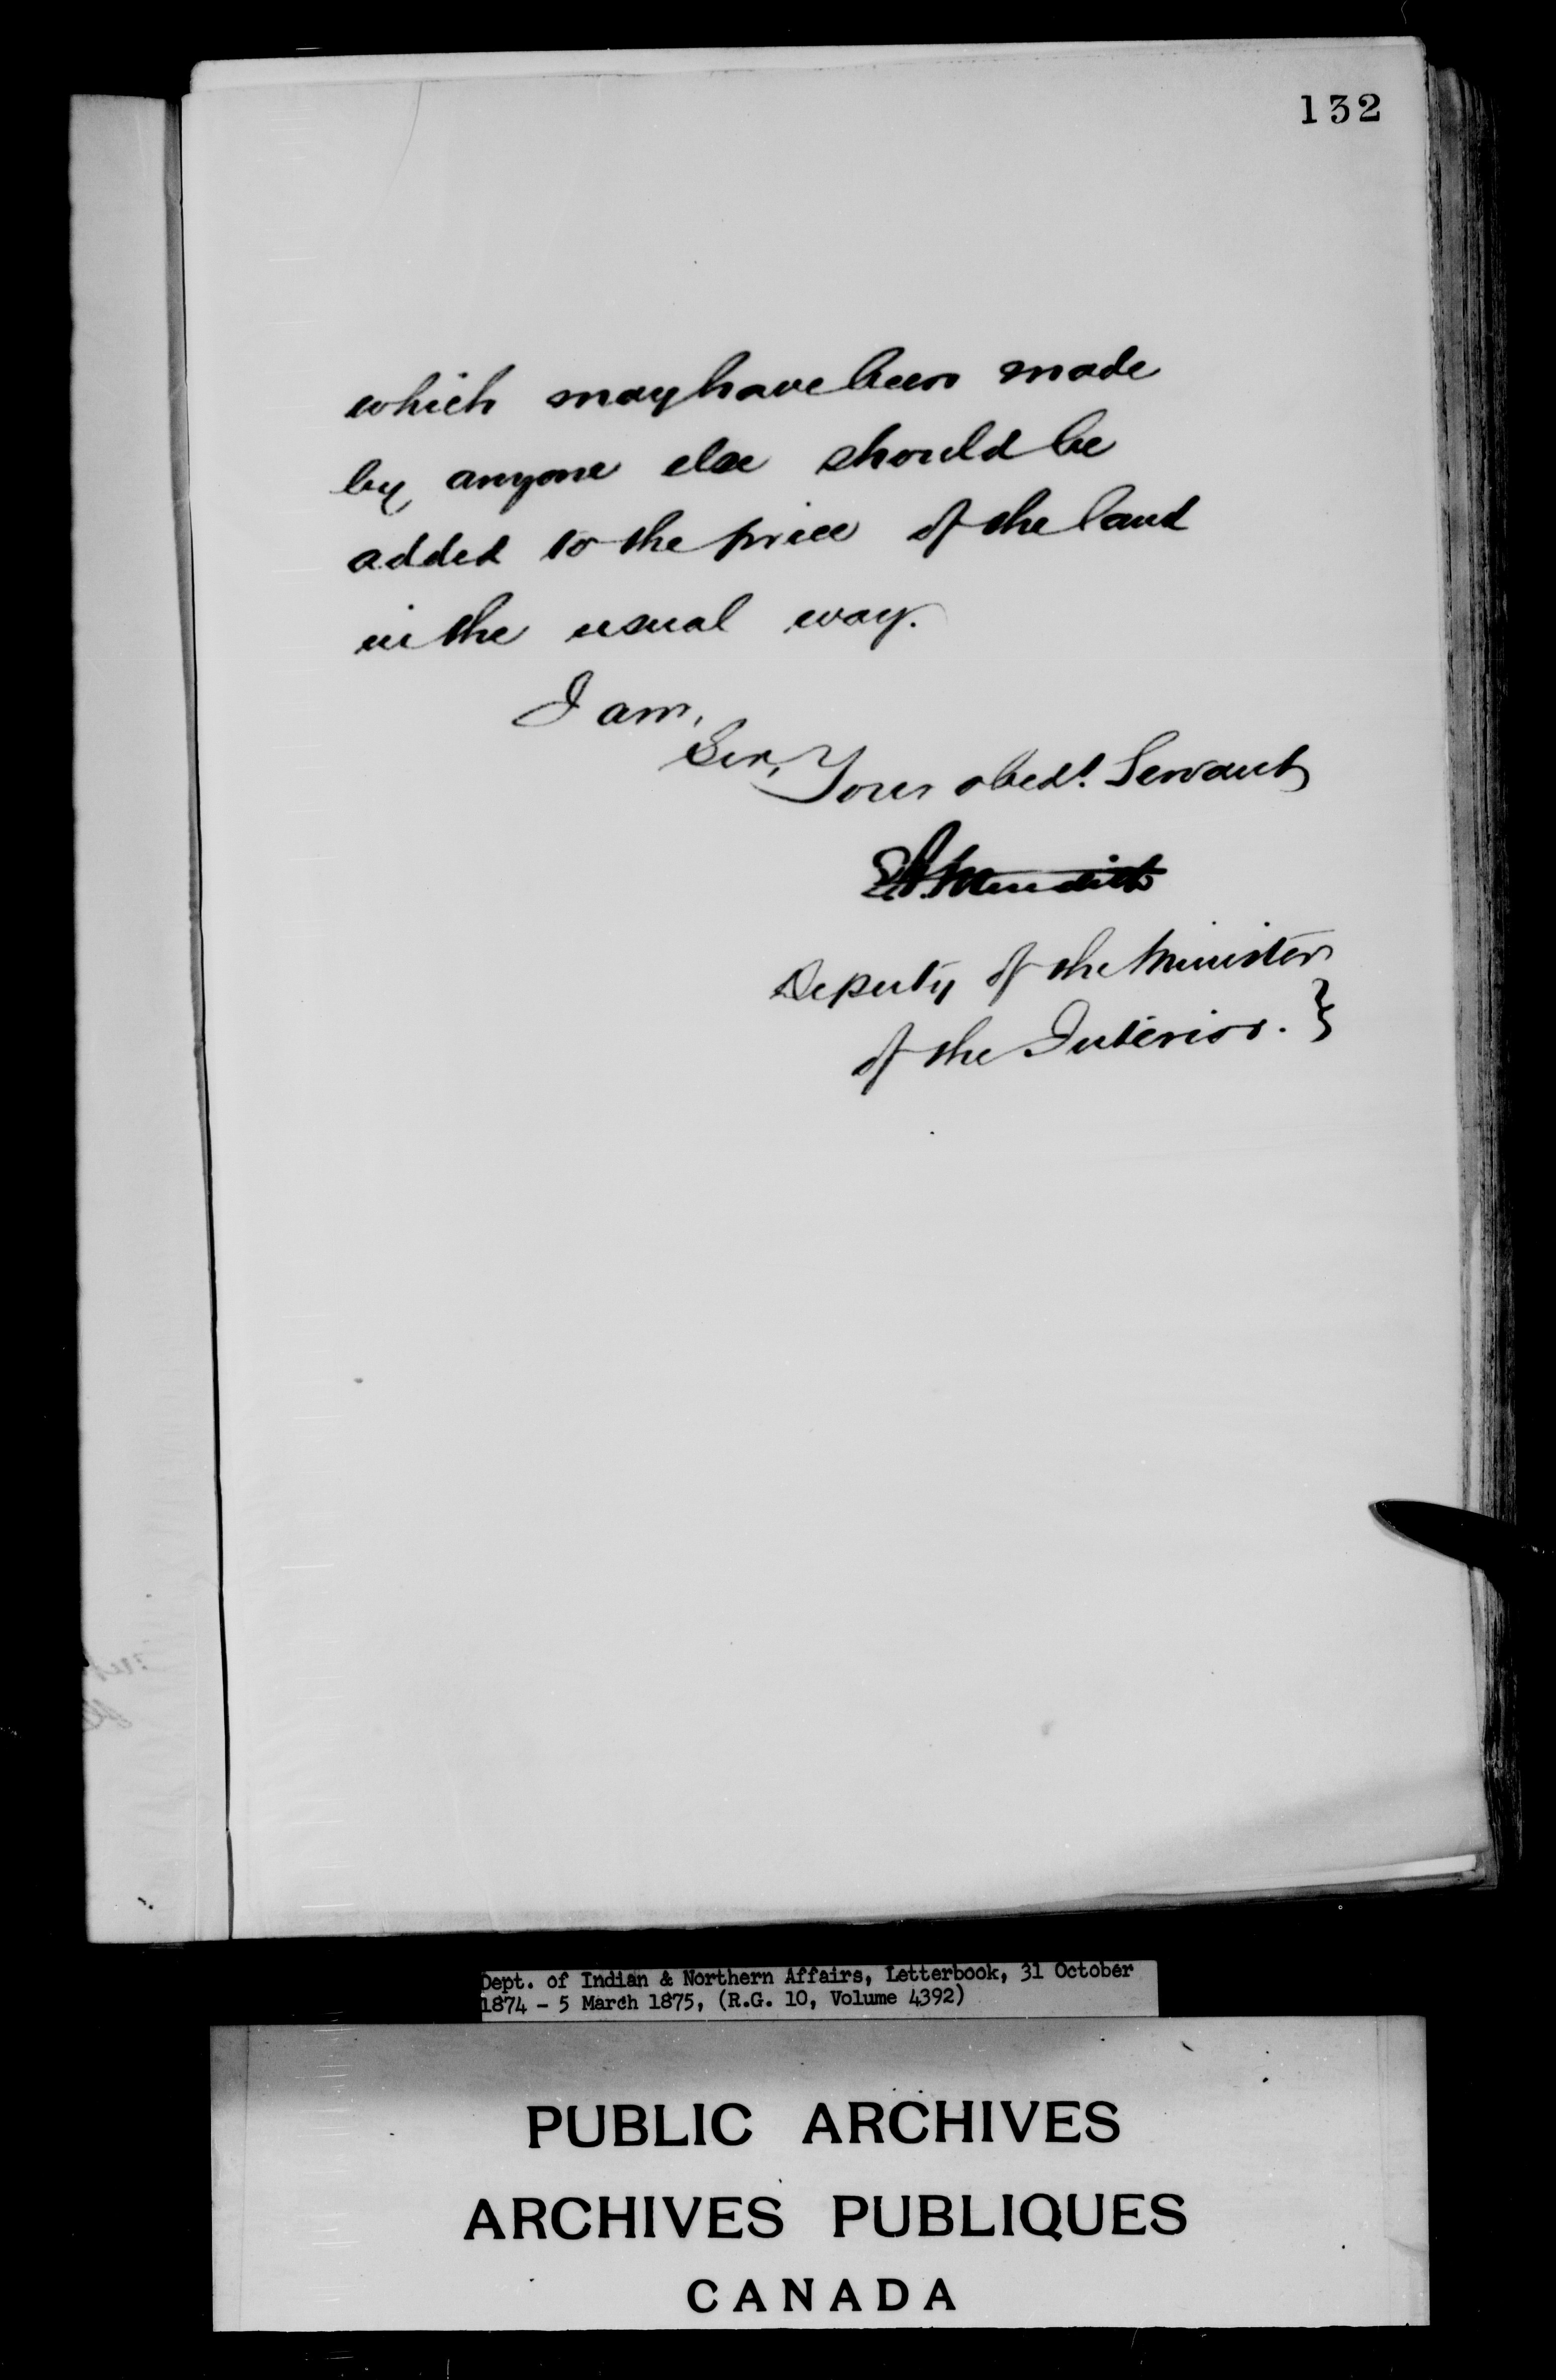 132
which may have been made
by anyone else should be
added to the price of the land
in the usual way.
I am,
Sir,
Your obedt. Servant
E A Meredith
Deputy of the Minister
of the Interior. }
Dept. of Indian & Northern Affairs, Letterbook, 31 October
1874 - 5 March 1875, (R.G. 10, Volume 4392)
PUBLIC ARCHIVES
ARCHIVES PUBLIQUES
CANADA